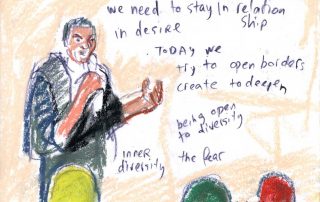 we need to stay in relation
ship
in desire
. TODAY we
try to open borders
create to deepen
being open
to diversity
inner
diversity
the fear